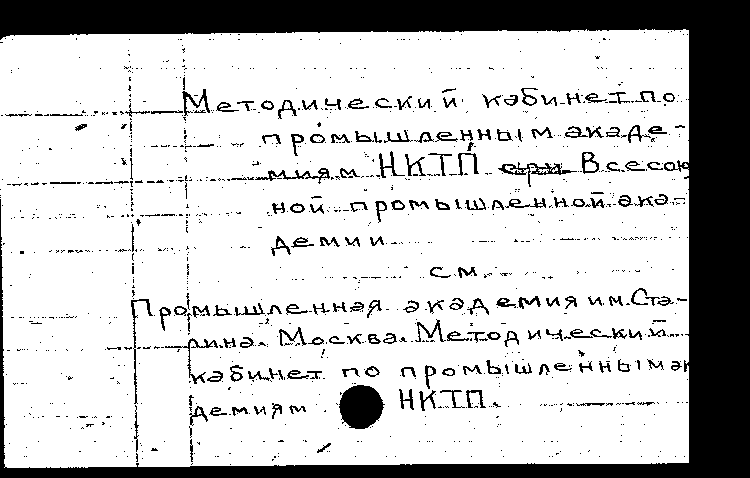 Методический кабинет по
промышленным акаде-
миям НКТП при Всесою
ной промышленной ака-
демии
см.
Промышленная академия им. Ста-
лина. Москва. Методический
кабинет по промышленным ак
демиям НКТП.